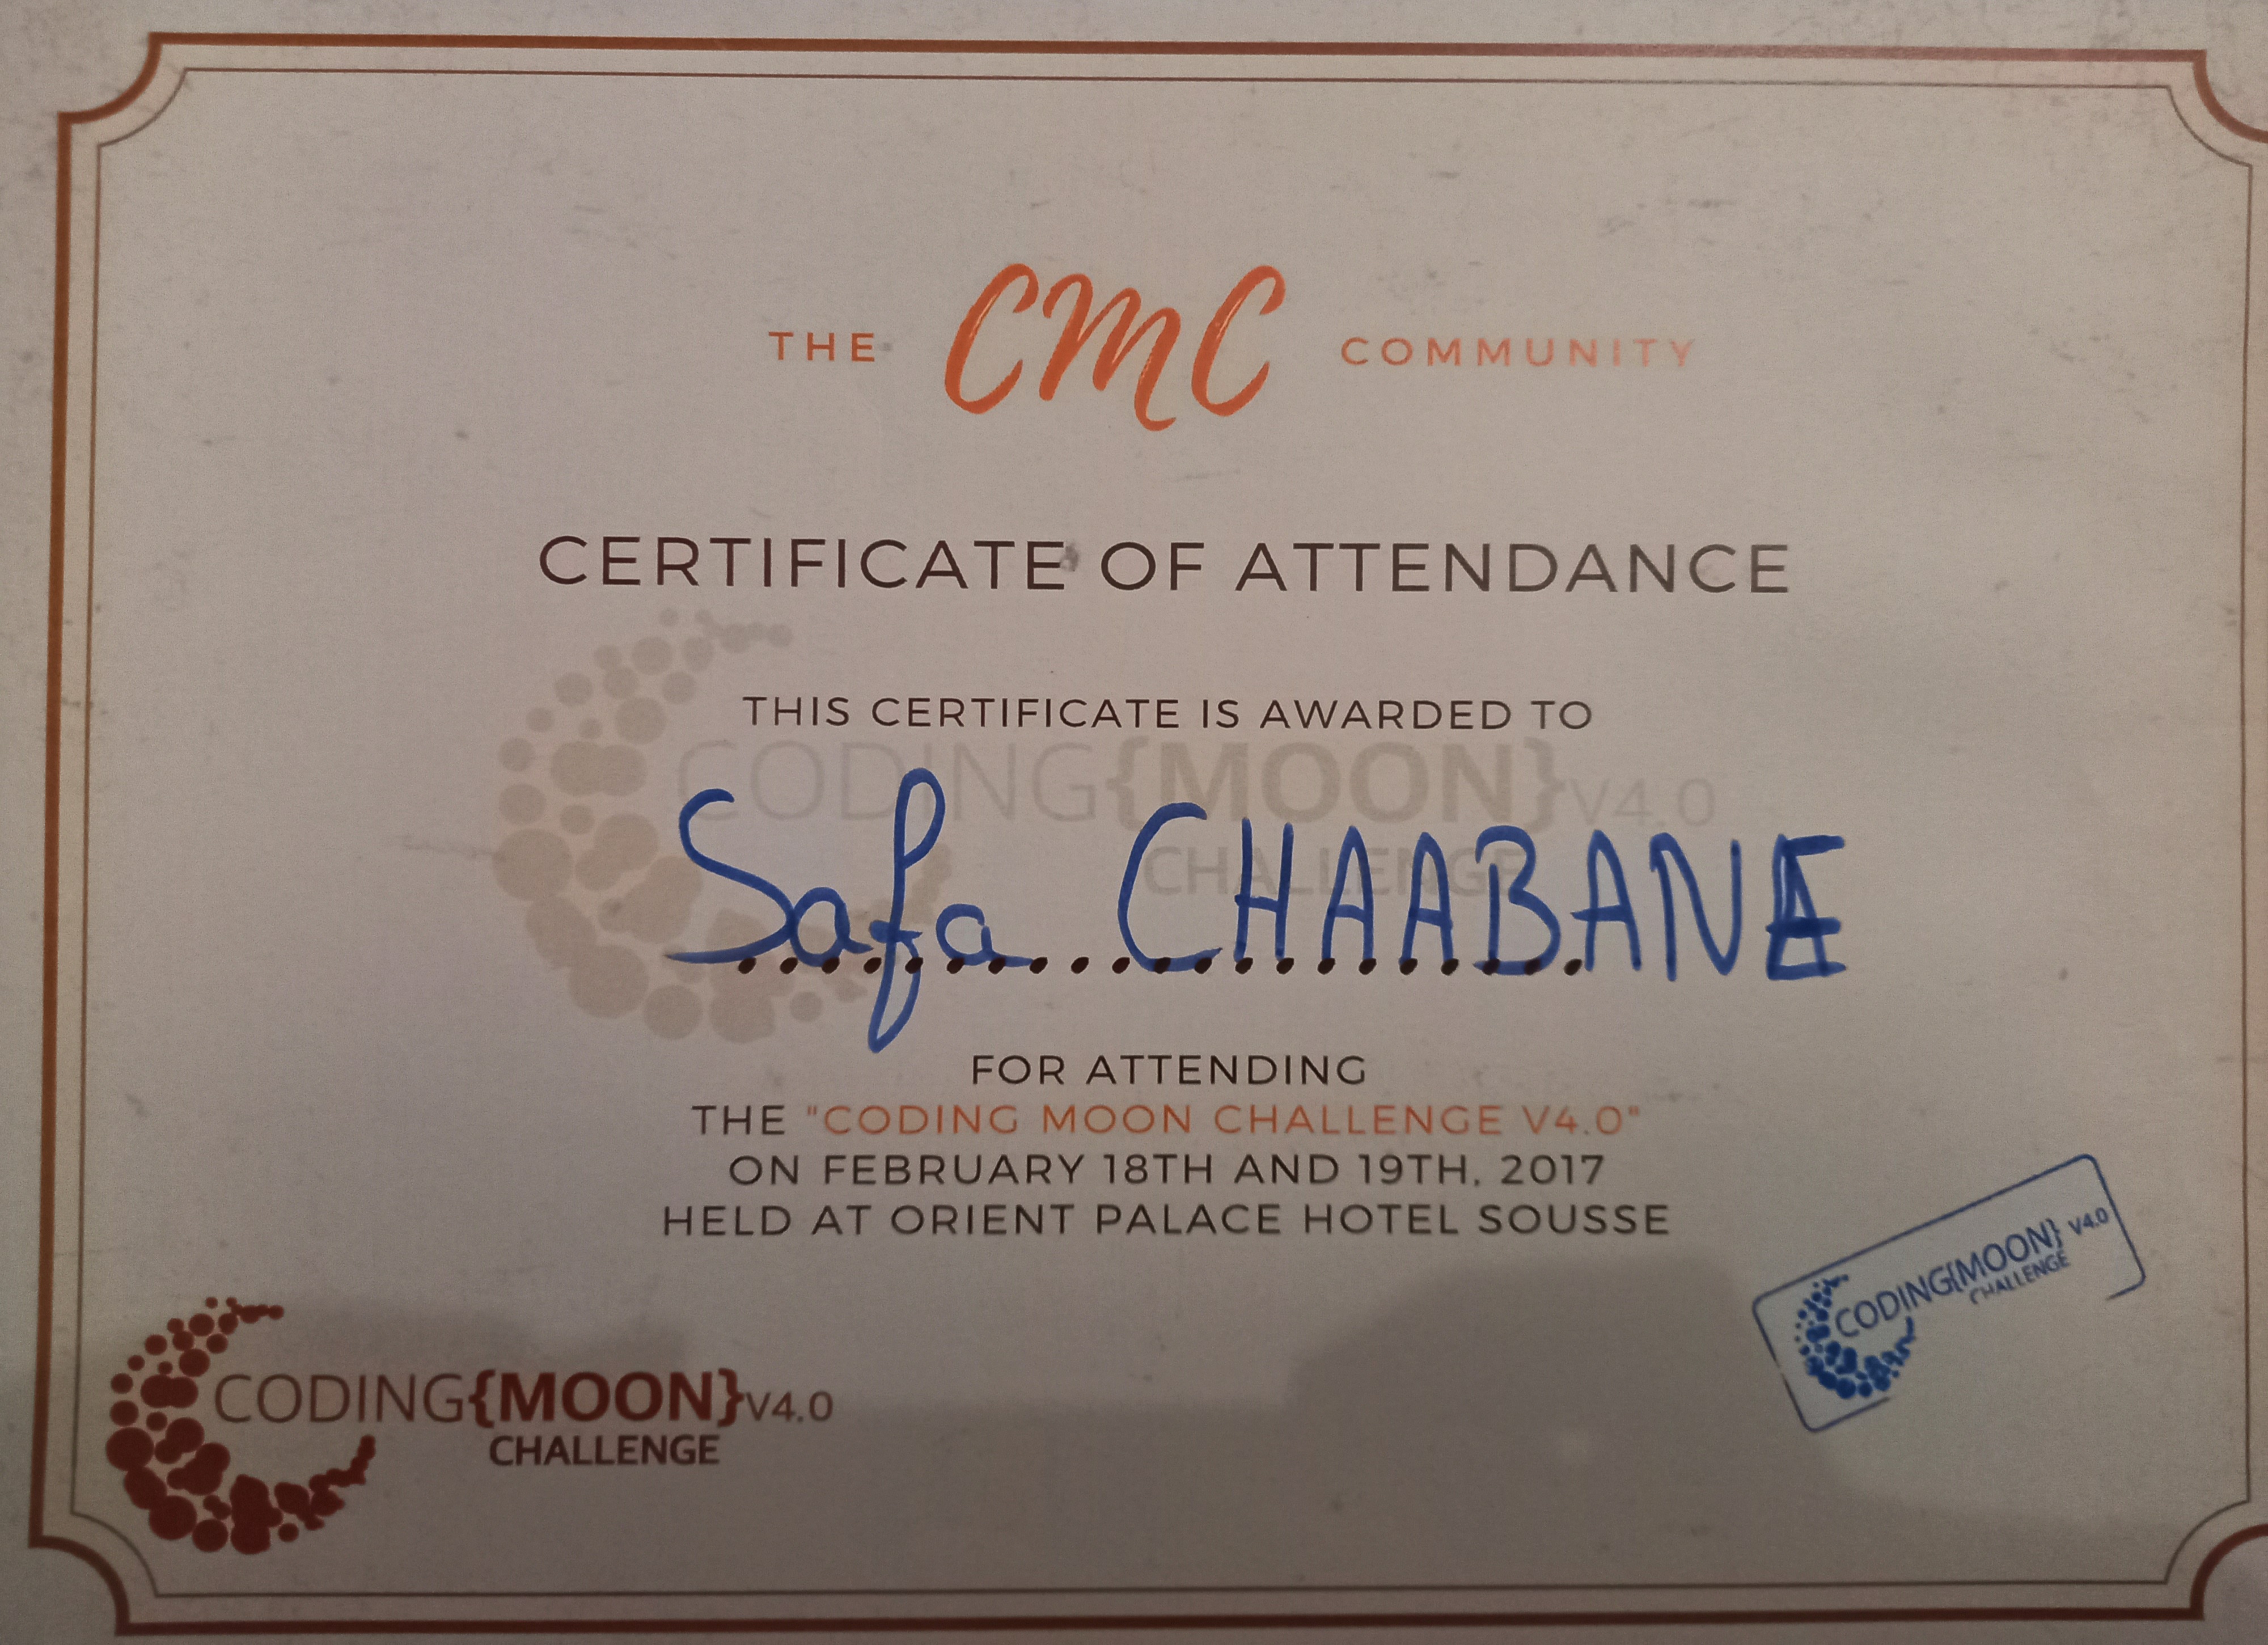 THE CMC COMMUNITY
CERTIFICATE OF ATTENDANCE
THIS CERTIFICATE IS AWARDED TO
CODING{MOON}V4.0
CHALLENGE
Safa CHAABANE
FOR ATTENDING
THE "CODING MOON CHALLENGE V4.0"
ON FEBRUARY 18TH AND 19TH, 2017
HELD AT ORIENT PALACE HOTEL SOUSSE
CODING{MOON}V4.0
CHALLENGE
CODING{MOON} V4.0
CHALLENGE